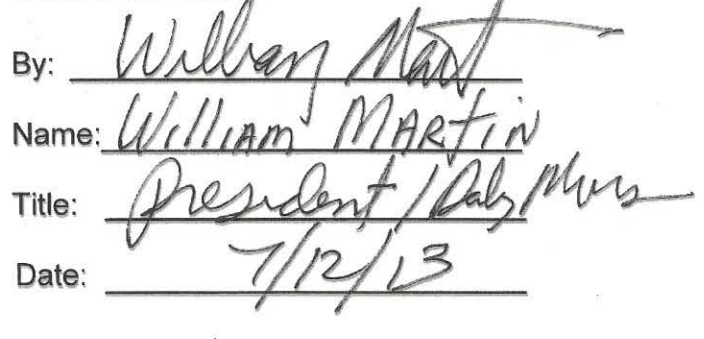 By: William Mart
Name: William MARTIN
Title: President /
Date: 7/12/13